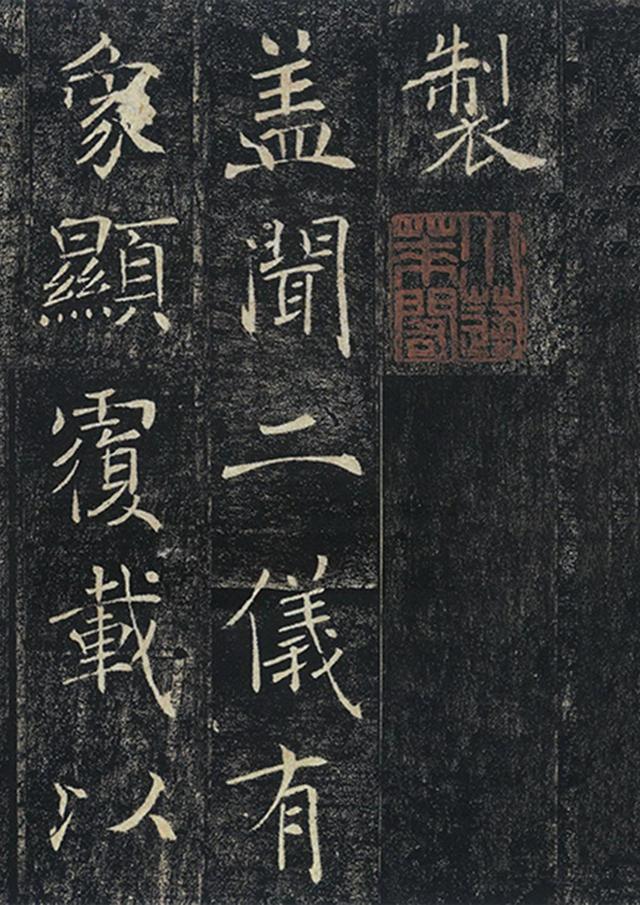 製
盖聞二儀有
象顯覆載以